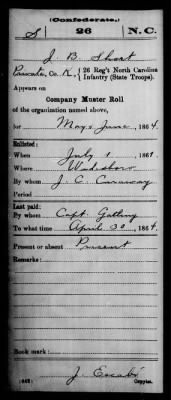 (Confederate.)
S 26 N.C.
J. B. Short
Private, Co. K, 26 Reg't North Carolina
Infantry (State Troops).
Appears on
Company Muster Roll
of the organization named above,
for May & June, 1864.
Enlisted:
When July 1, 1861.
Where Wadesboro
By whom J. C. Caraway
Period
Last paid:
By whom Capt. Gatling
To what time April 30, 1864.
Present or absent Present
Remarks:
Book mark:
(642)
Copyist.